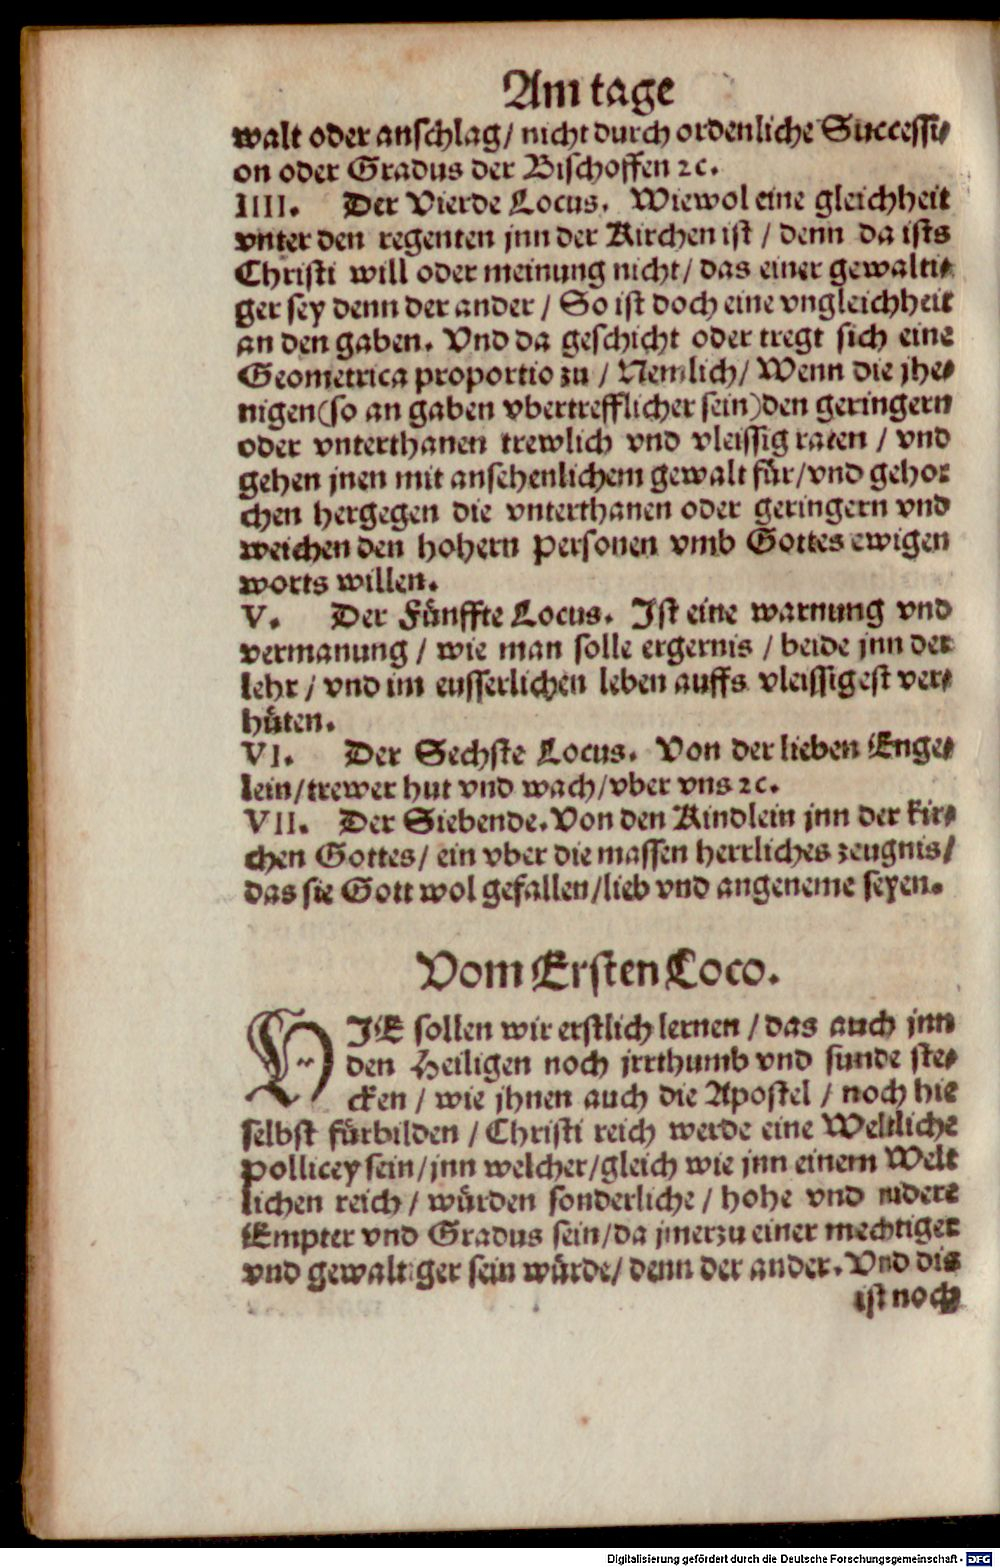 Am tage
walt oder anschlag/ nicht durch ordenliche Successi-
on oder Gradus der Bischoffen ꝛc.
IIII. Der Vierde Locus. Wiewol eine gleichheit
vnter den regenten jnn der Kirchen ist / denn da ists
Christi will oder meinung nicht/ das einer gewalti-
ger sey denn der ander / So ist doch eine vngleichheit
an den gaben. Vnd da geschicht oder tregt sich eine
Geometrica proportio zu / Nemlich/ Wenn die jhe-
nigen (so an gaben vbertrefflicher sein) den geringern
oder vnterthanen trewlich vnd vleissig raten / vnd
gehen jnen mit ansehenlichem gewalt für/ vnd gehor
chen hergegen die vnterthanen oder geringern vnd
weichen den hohern Personen vmb Gottes ewigen
worts willen.
V. Der Fünffte Locus. Ist eine warnung vnd
vermanung / wie man solle ergernis / beide jnn der
lehr / vnd im eusserlichen leben auffs vleissigest ver-
hüten.
VI. Der Sechste Locus. Von der lieben Enge-
lein/ trewer hut vnd wach/ vber vns ꝛc.
VII. Der Siebende. Von den Kindlein jnn der kir-
chen Gottes/ ein vber die massen herrliches zeugnis/
das sie Gott wol gefallen/ lieb vnd angeneme seyen.
Vom Ersten Loco.
HIE sollen wir erstlich lernen / das auch jnn
den Heiligen noch jrrthumb vnd sunde ste-
cken / wie jhnen auch die Apostel / noch hie
selbst fürbilden / Christi reich werde eine Weltliche
Pollicey sein/ jnn welcher/ gleich wie jnn einem Welt
lichen reich / würden sonderliche / hohe vnd nidere
Empter vnd Gradus sein/ da jmerzu einer mechtiger
vnd gewaltiger sein würde/ denn der ander. Vnd dis
ist noch
Digitalisierung gefördert durch die Deutsche Forschungsgemeinschaft - DFG